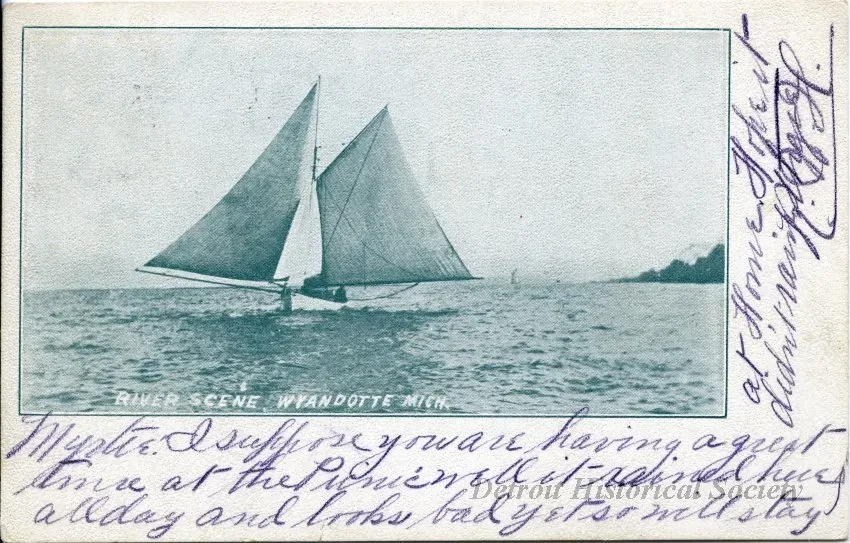 RIVER SCENE, WYANDOTTE MICH.
Myrtle. I suppose you are having a great
time at the Picnic well it rained here
all day and looks bad yet so will stay
at Home. Hope it
didn't rain
Detroit Historical Society